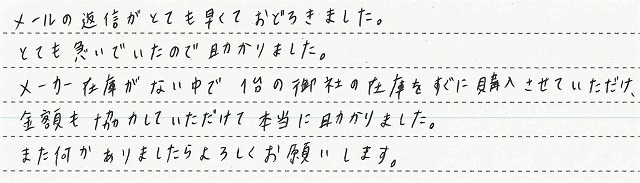 メールの返信がとても早くておどろきました。
とても急いでいたので助かりました。
メーカー在庫がない中で1台の御社の在庫をすぐに購入させていただけ、
金額も協力していただけて本当に助かりました。
また何かありましたらよろしくお願いします。